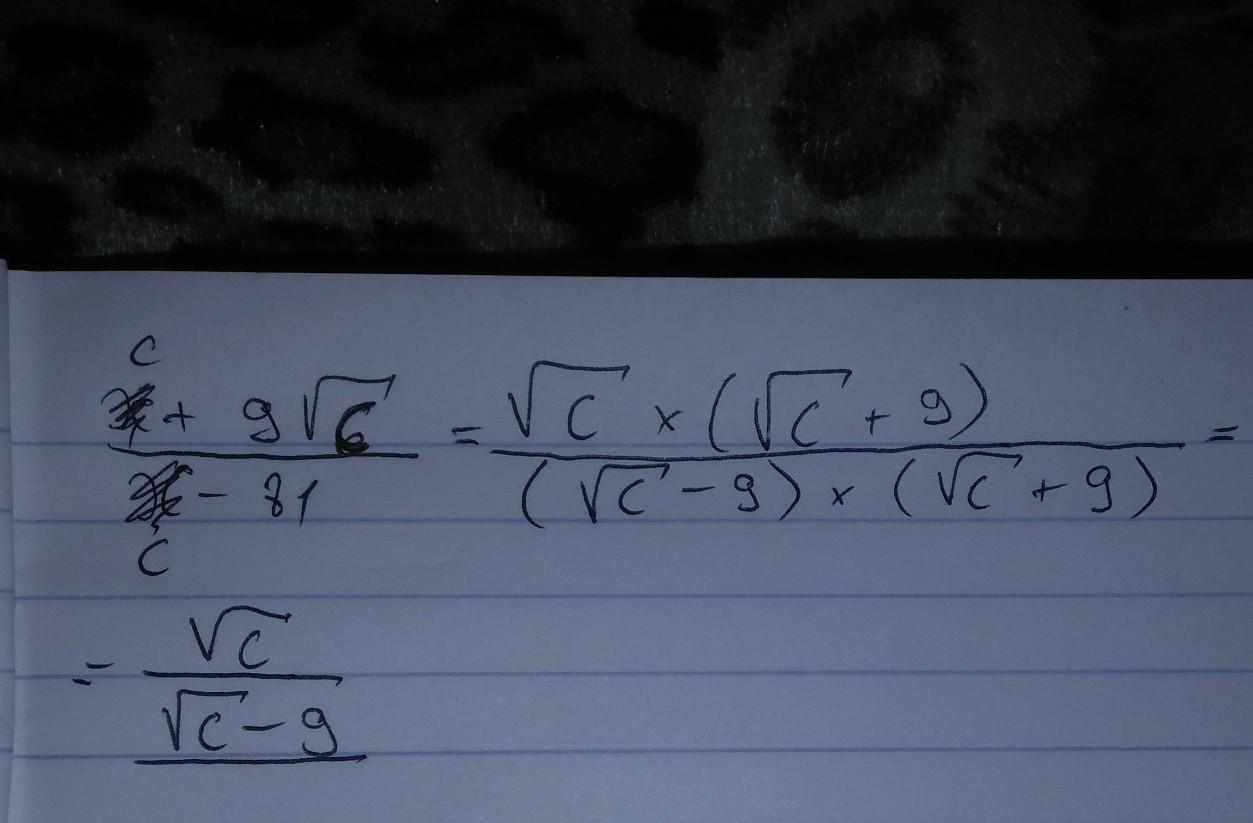 c + 9√c / c - 81 = √c × (√c + 9) / (√c - 9) × (√c + 9) =
= √c / √c - 9